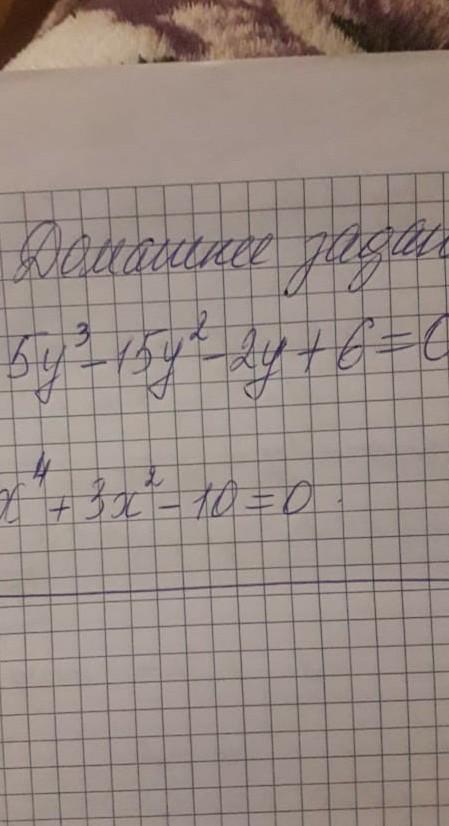 Домашнее задан
5y³-15y²-2y+6=0
x⁴+3x²-10=0.